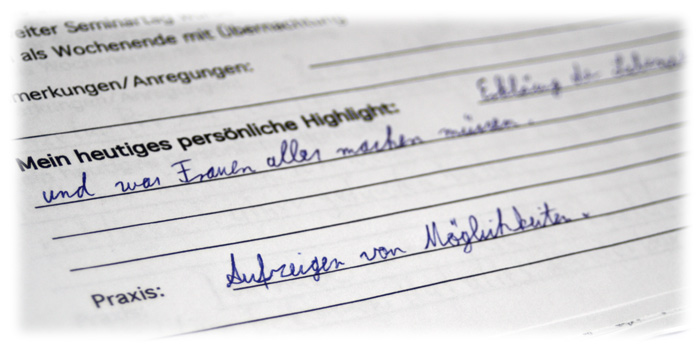 eiter Seminartag
als Wochenende mit Übernachtung
merkungen/Anregungen:
Mein heutiges persönliche Highlight: Erklärung der
und was Frauen alles machen müssen.
Praxis: Aufzeigen von Möglichkeiten.